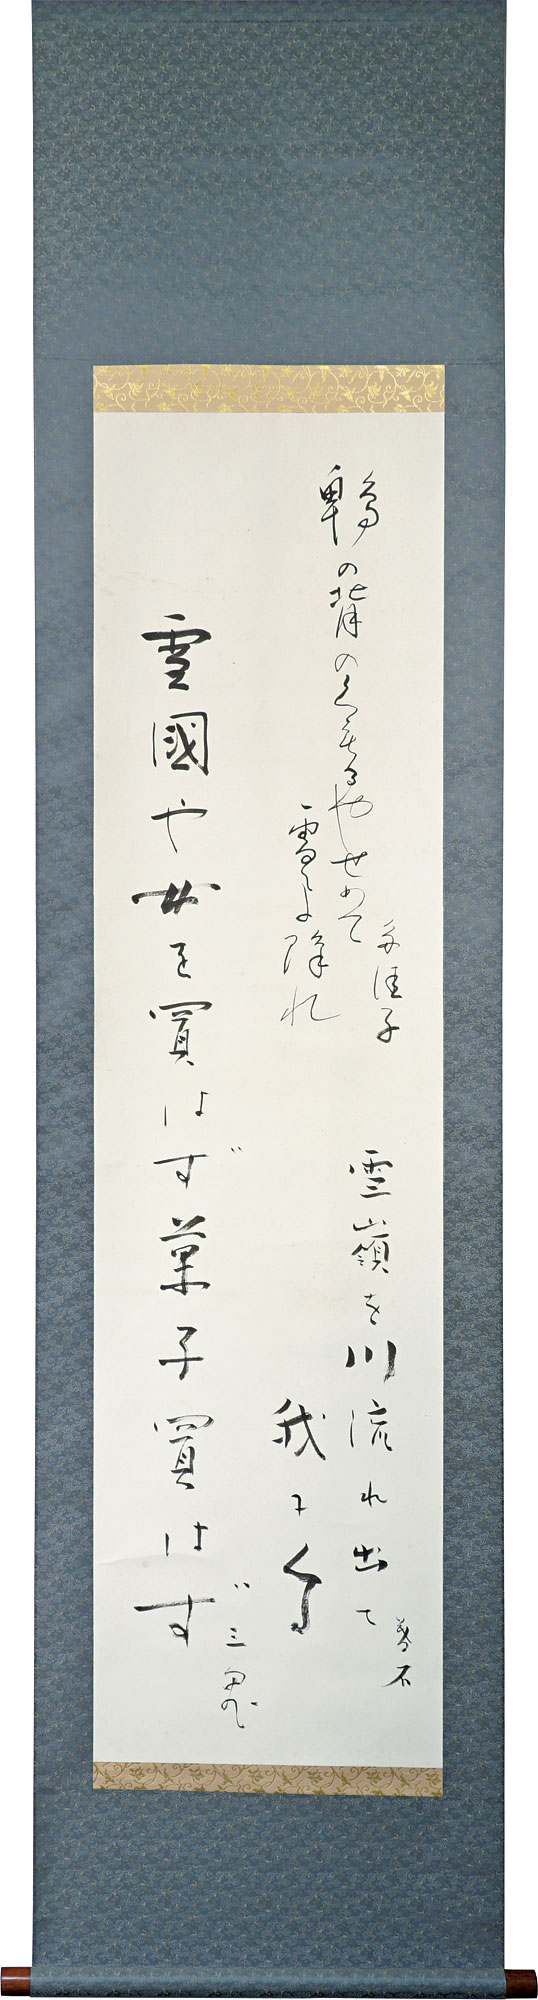 鵯の背のくもるやせめて
雪よ降れ
多佳子
雪嶺を川流れ出て
我に
暮石
雪國や女を買はず菓子買はず
三鬼